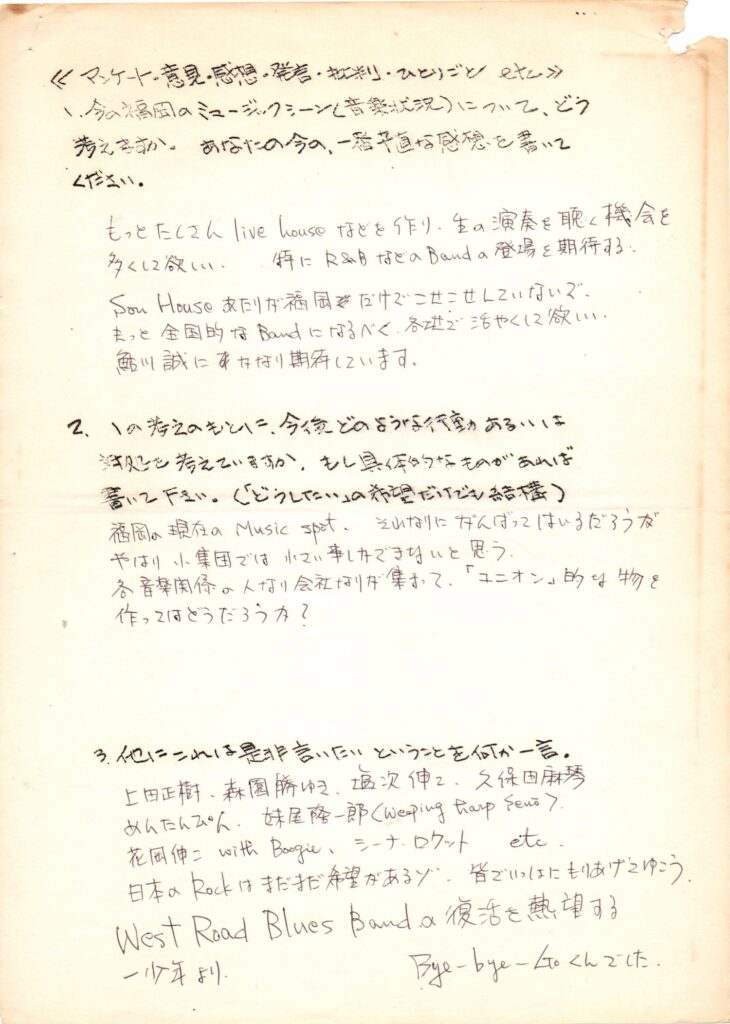 ≪ アンケート・意見・感想・発言・批判・ひとりごと etc ≫
1. 今の福岡のミュージックシーン(音楽状況)について、どう
考えますか。 あなたの今の、一番卒直な感想を書いて
ください。
もっとたくさん live house などを作り、生の演奏を聴く機会を
多くして欲しい. 特に R&B などのBandの登場を期待する.
Son House あたりが福岡だけでこせこせしていないで、
もっと全国的なBandになるべく、各地で活やくして欲しい.
鮎川誠にもかなり期待しています.
2. 1の考えのもとに、今後どのような行動あるいは
対処を考えていますか. もし具体的なものがあれば
書いて下さい。(「どうしたい」の希望だけでも結構)
福岡の現在の Music spot. それなりにがんばってはいるだろうが
やはり小集団では小さい事しかできないと思う.
各音楽関係の人なり会社なりが集まって、「ユニオン」的な物を
作ってはどうだろうか?
3. 他にこれは是非言いたいということを何か一言。
上田正樹、森園勝ゆき、塩次伸二、久保田麻琴
めんたんぴん、妹尾隆一郎(Weeping Harp Seno).
花岡伸二 with Boogie、シーナ・ロケット etc.
日本の Rock はまだまだ希望があるゾ. 皆でいっしょにもりあげてゆこう.
West Road Blues Band の復活を熱望する
一少年より. Bye-bye- くんでした.